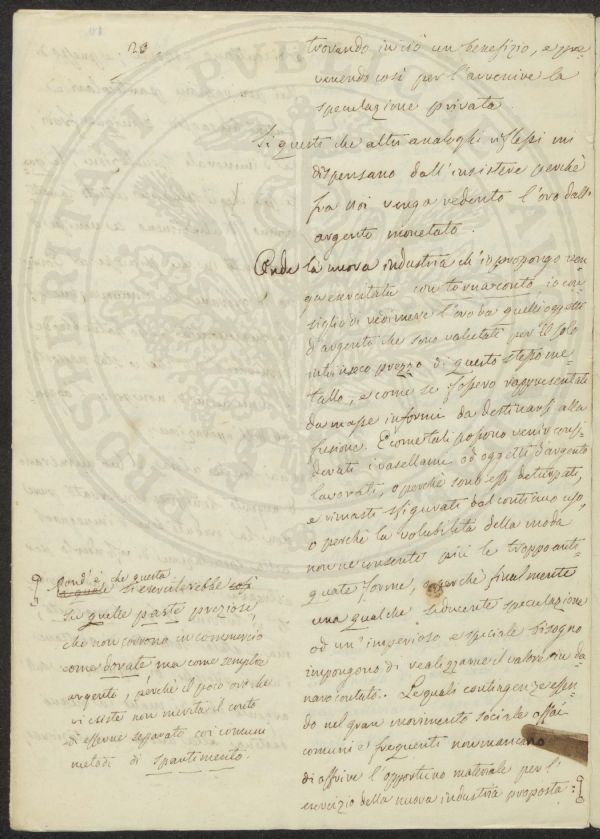 20
trovando in ciò un benefizio, e pre-
venendo così per l'avvenire la
speculazione privata.
Sì questi che altri analoghi riflessi mi
dispensano dall'insistere perchè
fra noi venga redento l'oro dall'
argento monetato.
Onde la nuova industria ch'io propongo ven-
ga esercitata con tornaconto io con-
siglio di redimere l'oro da quelli oggetti
d'argento che sono valutati per il solo
intrinseco prezzo di questo stesso me-
tallo, e come se fossero rappresentati
da masse informi da destinarsi alla
fusione. E come tali possono venir consi-
derati i vasellami od oggetti d'argento
lavorati, o perchè sono essi deturpati,
e rimasti sfigurati dal continuo uso,
o perchè la volubilità della moda
non ne consente più le troppo anti-
quate forme, o perchè finalmente
una qualche seducente speculazione
od un'imperioso e speciale bisogno
impongono di realizzarne il valore in da-
naro contato. Le quali contingenze essen-
do nel gran movimento sociale assai
comuni e frequenti non mancano
di offrire l'opportuno materiale per l'
esercizio della nuova industria proposta:
ond'è che questa
la quale si eserciterebbe così
su quelle paste preziose,
che non corrono in commercio
come dorate ma come semplice
argento, perchè il poco oro che
vi esiste non merita il conto
di esserne separato coi comuni
metodi di spartimento.
PROSPERITATI PVBLICAE